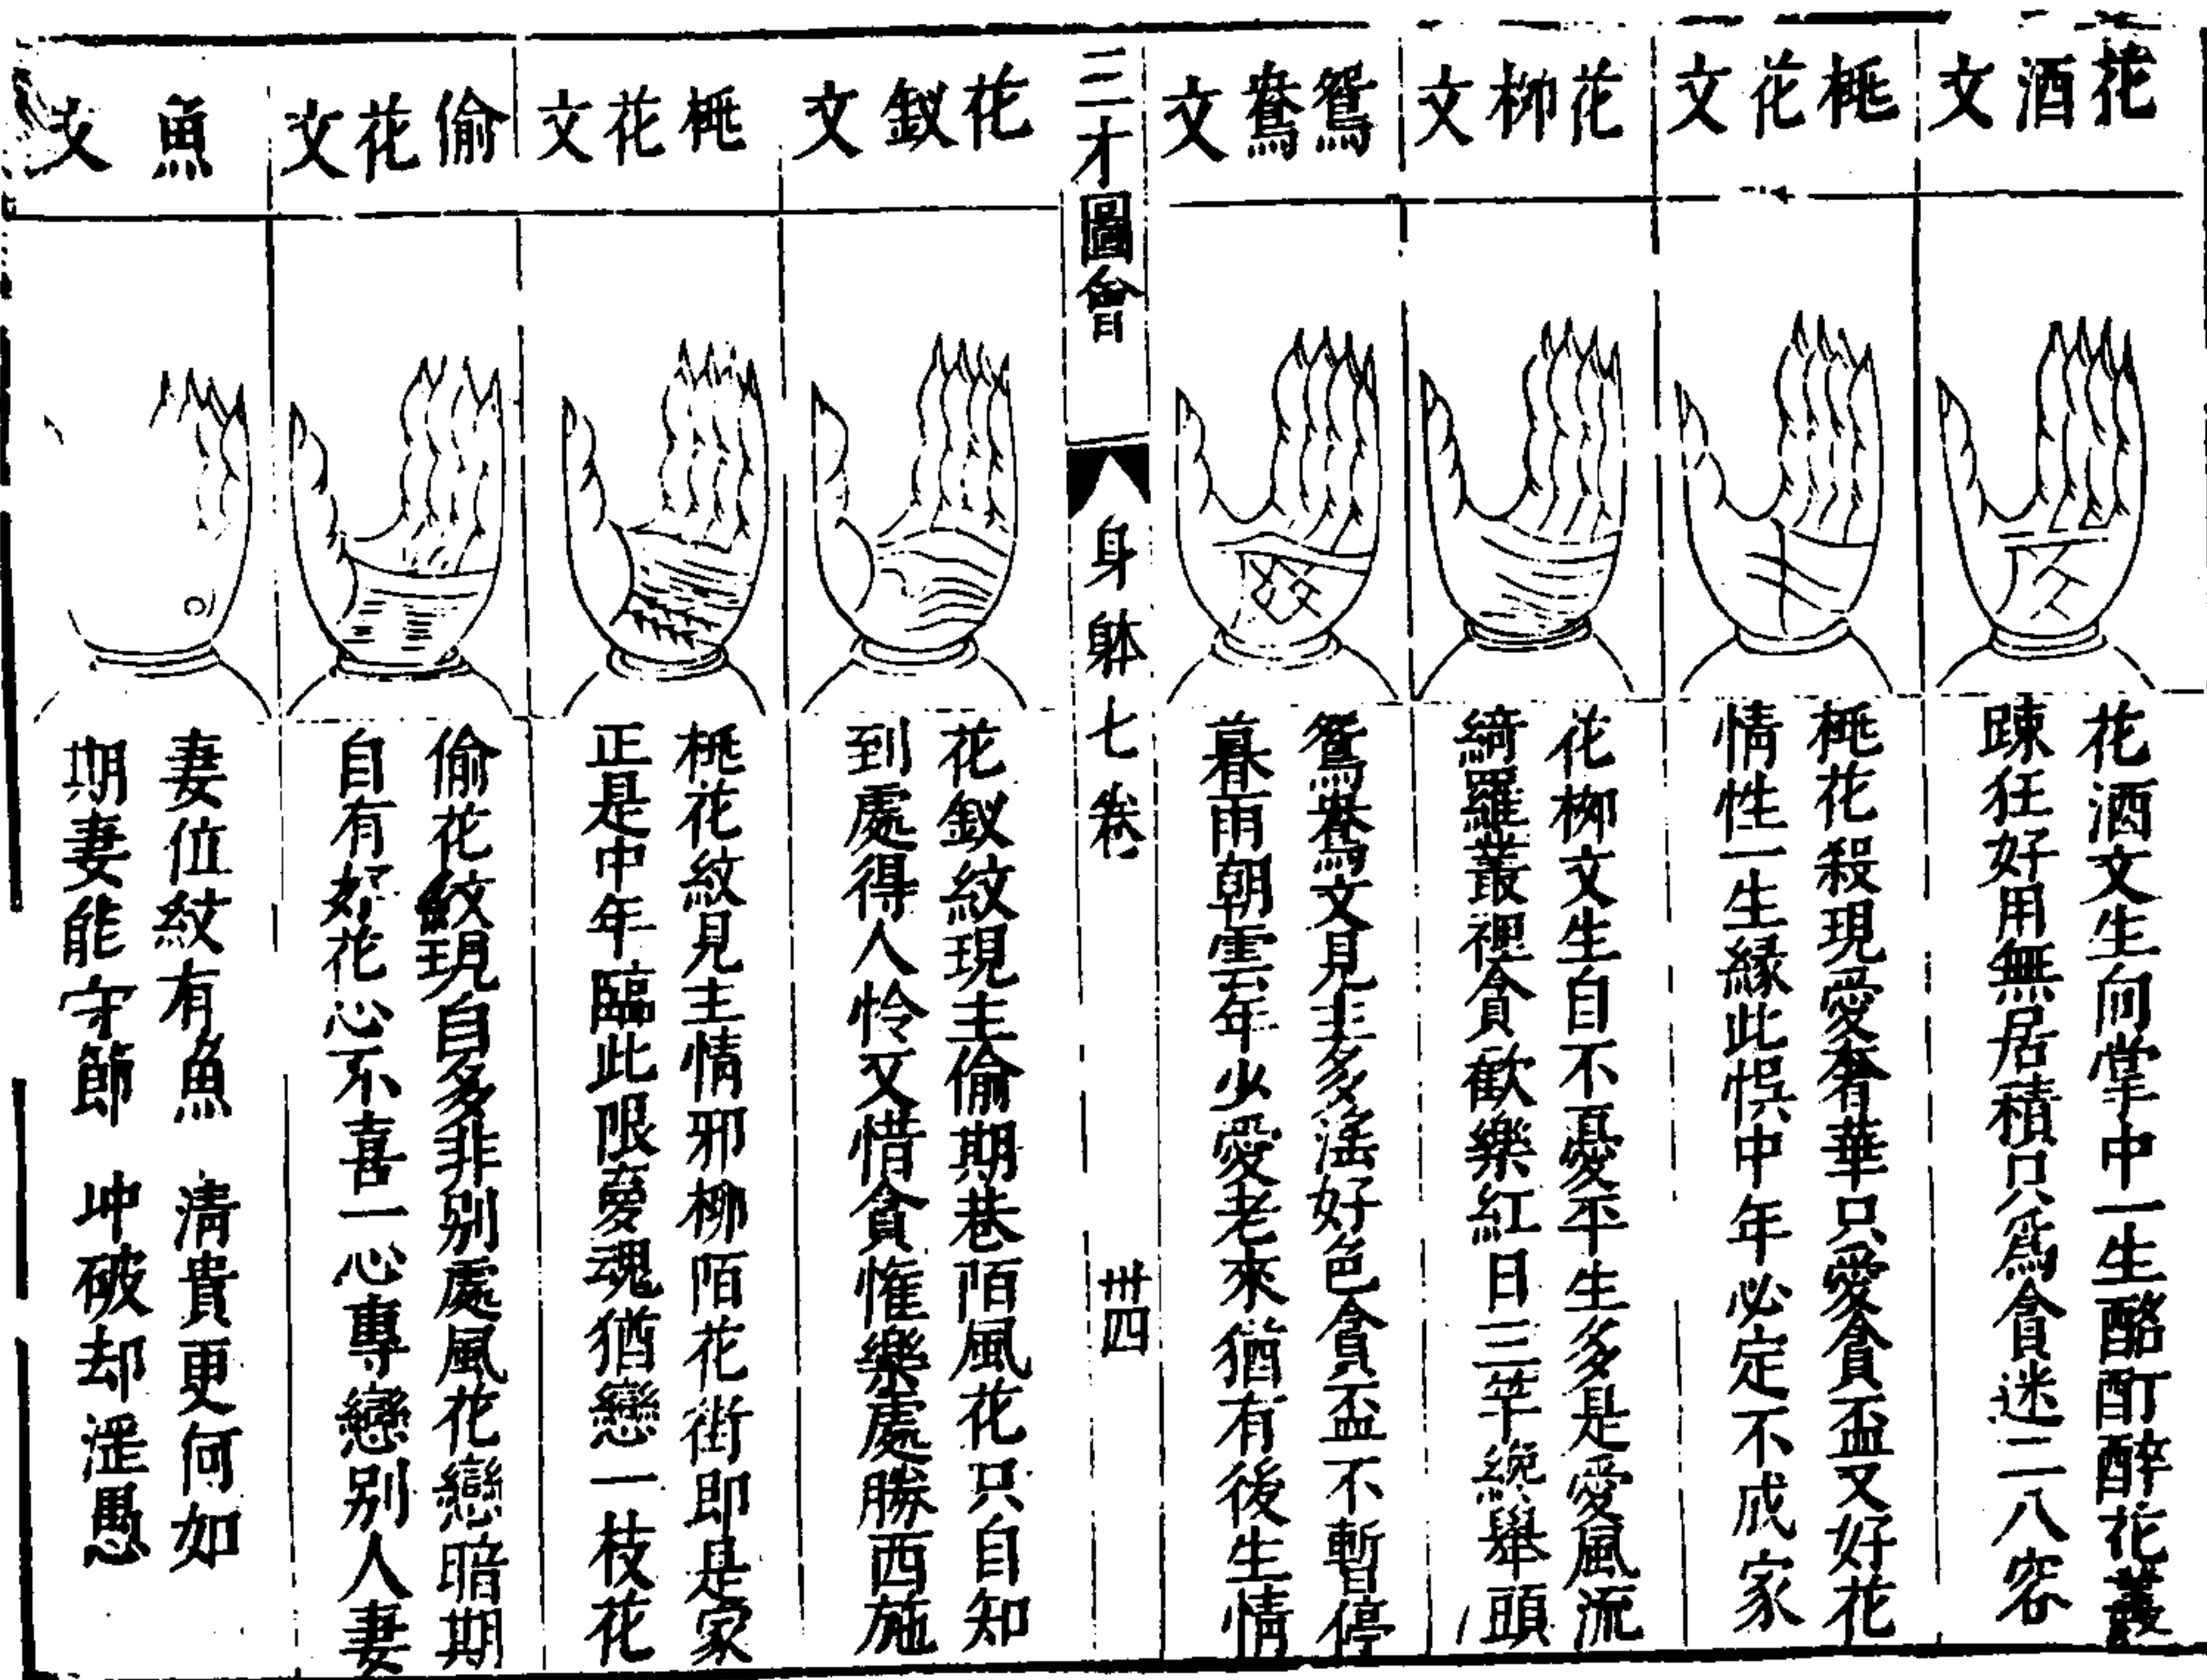 花酒文
花酒文生向掌中一生酩酊醉花叢
踈狂好用無居積只爲貪迷二八容
桃花文
桃花殺現愛奢華只愛貪盃又好花
情性一生緣此悞中年必定不成家
花柳文
花柳文生自不憂平生多是愛風流
綺羅叢裡貪歡樂紅日三竿纔舉頭
鴛鴦文
鴛鴦文見主多滛好色貪盃不暫停
暮雨朝雲年少愛老來猶有後生情
三才圖會
身體七卷
卅四
花釵文
花釵紋現主偷期巷陌風花只自知
到處得人怜又惜貪惟樂處勝西施
桃花文
桃花紋見主情邪柳陌花街即是家
正是中年臨此限夢魂猶戀一枝花
偷花文
偷花紋現自多非别處風花戀暗期
自有好花心不喜一心專戀别人妻
魚文
妻位紋有魚 清貴更何如
期妻能守節 冲破却滛愚